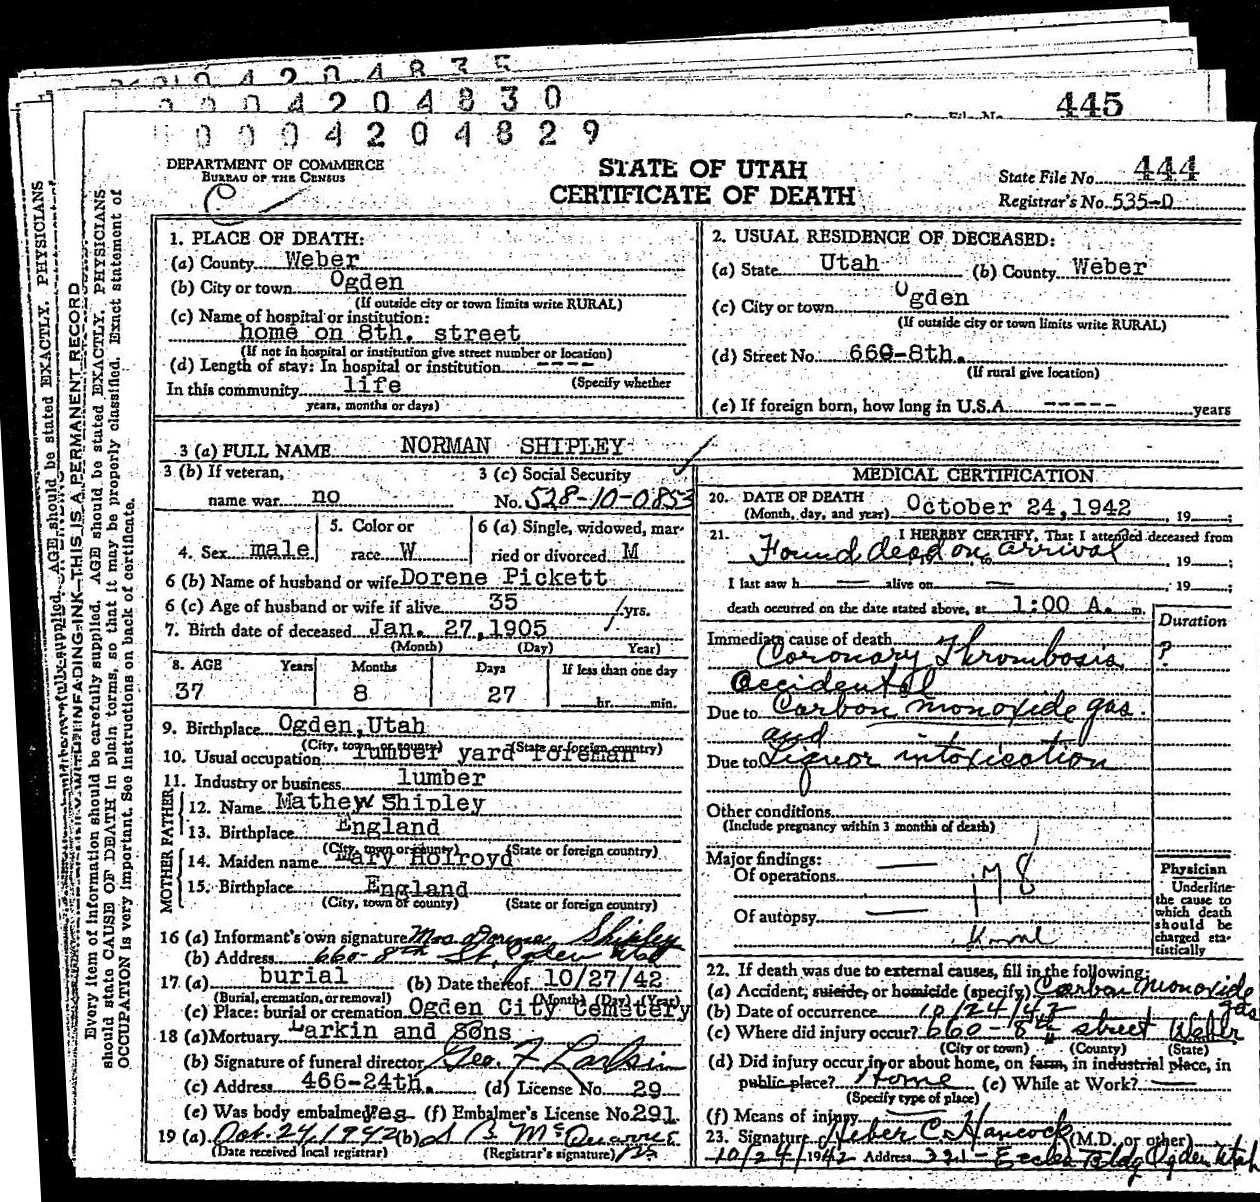 445
0 0 0 4 2 0 4 8 3 0
0 0 0 4 2 0 4 8 2 9
DEPARTMENT OF COMMERCE
BUREAU OF THE CENSUS
STATE OF UTAH
CERTIFICATE OF DEATH
State File No. 444
Registrar's No. 535-D
Every item of information should be carefully supplied. AGE should be stated EXACTLY. PHYSICIANS
should state CAUSE OF DEATH in plain terms, so that it may be properly classified. Exact statement of
OCCUPATION is very important. See instructions on back of certificate.
1. PLACE OF DEATH:
(a) County Weber
(b) City or town Ogden
(If outside city or town limits write RURAL)
(c) Name of hospital or institution:
home on 8th. street
(If not in hospital or institution give street number or location)
(d) Length of stay: In hospital or institution ----
(Specify whether
In this community life
years, months or days)
2. USUAL RESIDENCE OF DECEASED:
(a) State Utah (b) County Weber
(c) City or town Ogden
(If outside city or town limits write RURAL)
(d) Street No. 660-8th.
(If rural give location)
(e) If foreign born, how long in U.S.A. ----- years
3 (a) FULL NAME NORMAN SHIPLEY
3 (b) If veteran,
name war no
3 (c) Social Security
No. 528-10-0853
4. Sex male
5. Color or
race W
6 (a) Single, widowed, mar-
ried or divorced M
6 (b) Name of husband or wife Dorene Pickett
6 (c) Age of husband or wife if alive 35 yrs.
7. Birth date of deceased Jan. 27, 1905
(Month) (Day) Year)
8. AGE Years Months Days If less than one day
37 8 27 hr. min.
9. Birthplace Ogden, Utah
(City, town or county) (State or foreign country)
10. Usual occupation lumber yard foreman
11. Industry or business lumber
FATHER
12. Name Mathew Shipley
13. Birthplace England
(City, town or county) (State or foreign country)
MOTHER
14. Maiden name Mary Holroyd
15. Birthplace England
(City, town of county) (State or foreign country)
16 (a) Informant's own signature Mrs Dorene Shipley
(b) Address 660-8th St. Ogden Utah
17 (a) burial (b) Date thereof 10/27/42
(Burial, cremation, or removal) (Month) (Day) (Year)
(c) Place: burial or cremation Ogden City Cemetery
18 (a) Mortuary Larkin and Sons
(b) Signature of funeral director Geo. F Larkin
(c) Address 466-24th. (d) License No. 29
(e) Was body embalmed Yes (f) Embalmer's License No. 291
19 (a) Oct. 24, 1942 (b) S B McQuarrie
(Date received local registrar) (Registrar's signature)
MEDICAL CERTIFICATION
20. DATE OF DEATH
(Month, day, and year) October 24, 1942, 19 ;
21. I HEREBY CERTIFY, That I attended deceased from
Found dead on arrival, to , 19 ;
I last saw h — alive on — , 19 ;
death occurred on the date stated above, at 1:00 A. m.
Duration
Immediate cause of death
Coronary Thrombosis ?
Accidental
Due to Carbon monoxide gas.
and
Due to Liquor intoxication
Other conditions
(Include pregnancy within 3 months of death)
Major findings:
Of operations —
178
Of autopsy —
Home
Physician
Underline
the cause to
which death
should be
charged sta-
tistically
22. If death was due to external causes, fill in the following:
(a) Accident, suicide, or homicide (specify) Carbon Monoxide gas
(b) Date of occurrence 10/24/42
(c) Where did injury occur? 660-8th street Weber
(City or town) (County) (State)
(d) Did injury occur in or about home, on farm, in industrial place, in
public place? Home (e) While at Work? —
(Specify type of place)
(f) Means of injury —
23. Signature Heber C. Hancock (M.D. or other)
10/24/1942 Address 321-Eccles Bldg Ogden Utah